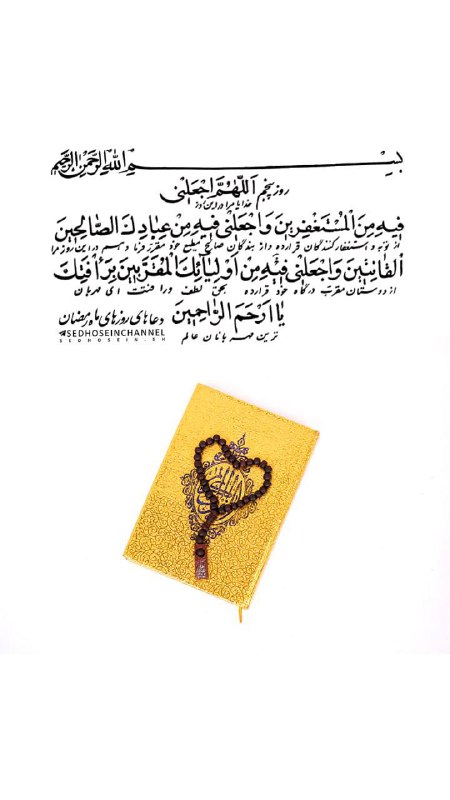 بسم الله الرحمن الرحیم
روز پنجم اَللّهُمَّ اجْعَلنی
خدایا مرا در این روز
فیهِ مِنَ الْمُسْتَغْفِرینَ وَاجْعَلنی فیهِ مِنْ عِبادِكَ الصّالِحینَ
از توبه و استغفار کنندگان قرار ده و از بندگان صالح مطیع خود مقرر فرما و هم در این روز مرا
اَلقانِتینَ وَاجْعَلنی فیهِ مِنْ اَوْلِیائِكَ الْمُقَرَّبینَ بِرَأفَتِكَ
از دوستان مقرب درگاه خود قرار ده بحق لطف و رافتت ای مهربان
یا اَرْحَمَ الرّاحِمینَ
ترین مهربانان عالم
دعاهای روزهای ماه رمضان
SEDHOSEINCHANNEL
SEDHOSEIN.SH